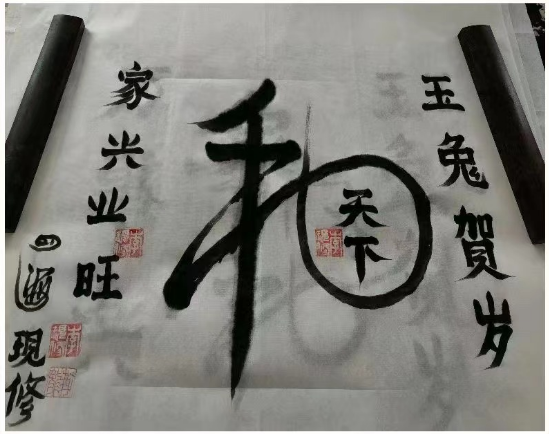 玉兔贺岁
和
天下
家兴业旺
四海
现修